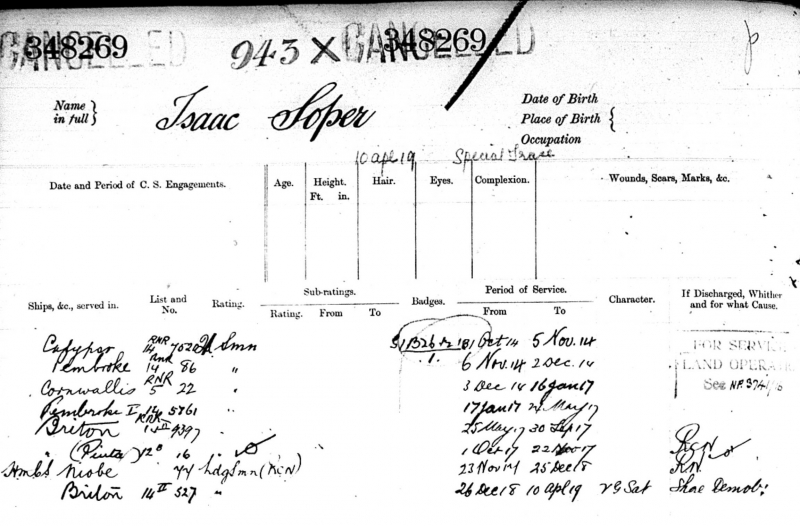 CANCELLED 348269 943 X CANCELLED 348269
Name in full } Isaac Soper
Date of Birth
Place of Birth {
Occupation
10 apl 19 Special
Date and Period of C. S. Engagements. Age. Height. Ft. in. Hair. Eyes. Complexion. Wounds, Scars, Marks, &c.
Ships, &c., served in. List and No. Rating. Sub-ratings. Rating. From To Badges. Period of Service. From To Character. If Discharged, Whither and for what Cause.
RNR 14 Smn Oct 14 5 Nov. 14
Pembroke RNR 14 86 " 1. 6 Nov. 14 2 Dec. 14
Cornwallis RNR 5 22 " 3 Dec 14 16 Jan 17
Pembroke I 14 5761 " 17 Jan 17 24 May 17
Briton RNR 9397 25 May 17 30 Sep 17
" (Pinta) 16 " 1 Oct 17 22 Nov 17 RCN
HMCS Niobe 44 Ldg Smn (RCN) 23 Nov 17 25 Dec 18 RN
Briton 14 II 527 " 26 Dec 18 10 Apl 19 VG Sat Shae Demob:
FOR SERVI
LAND OPERA
See NP